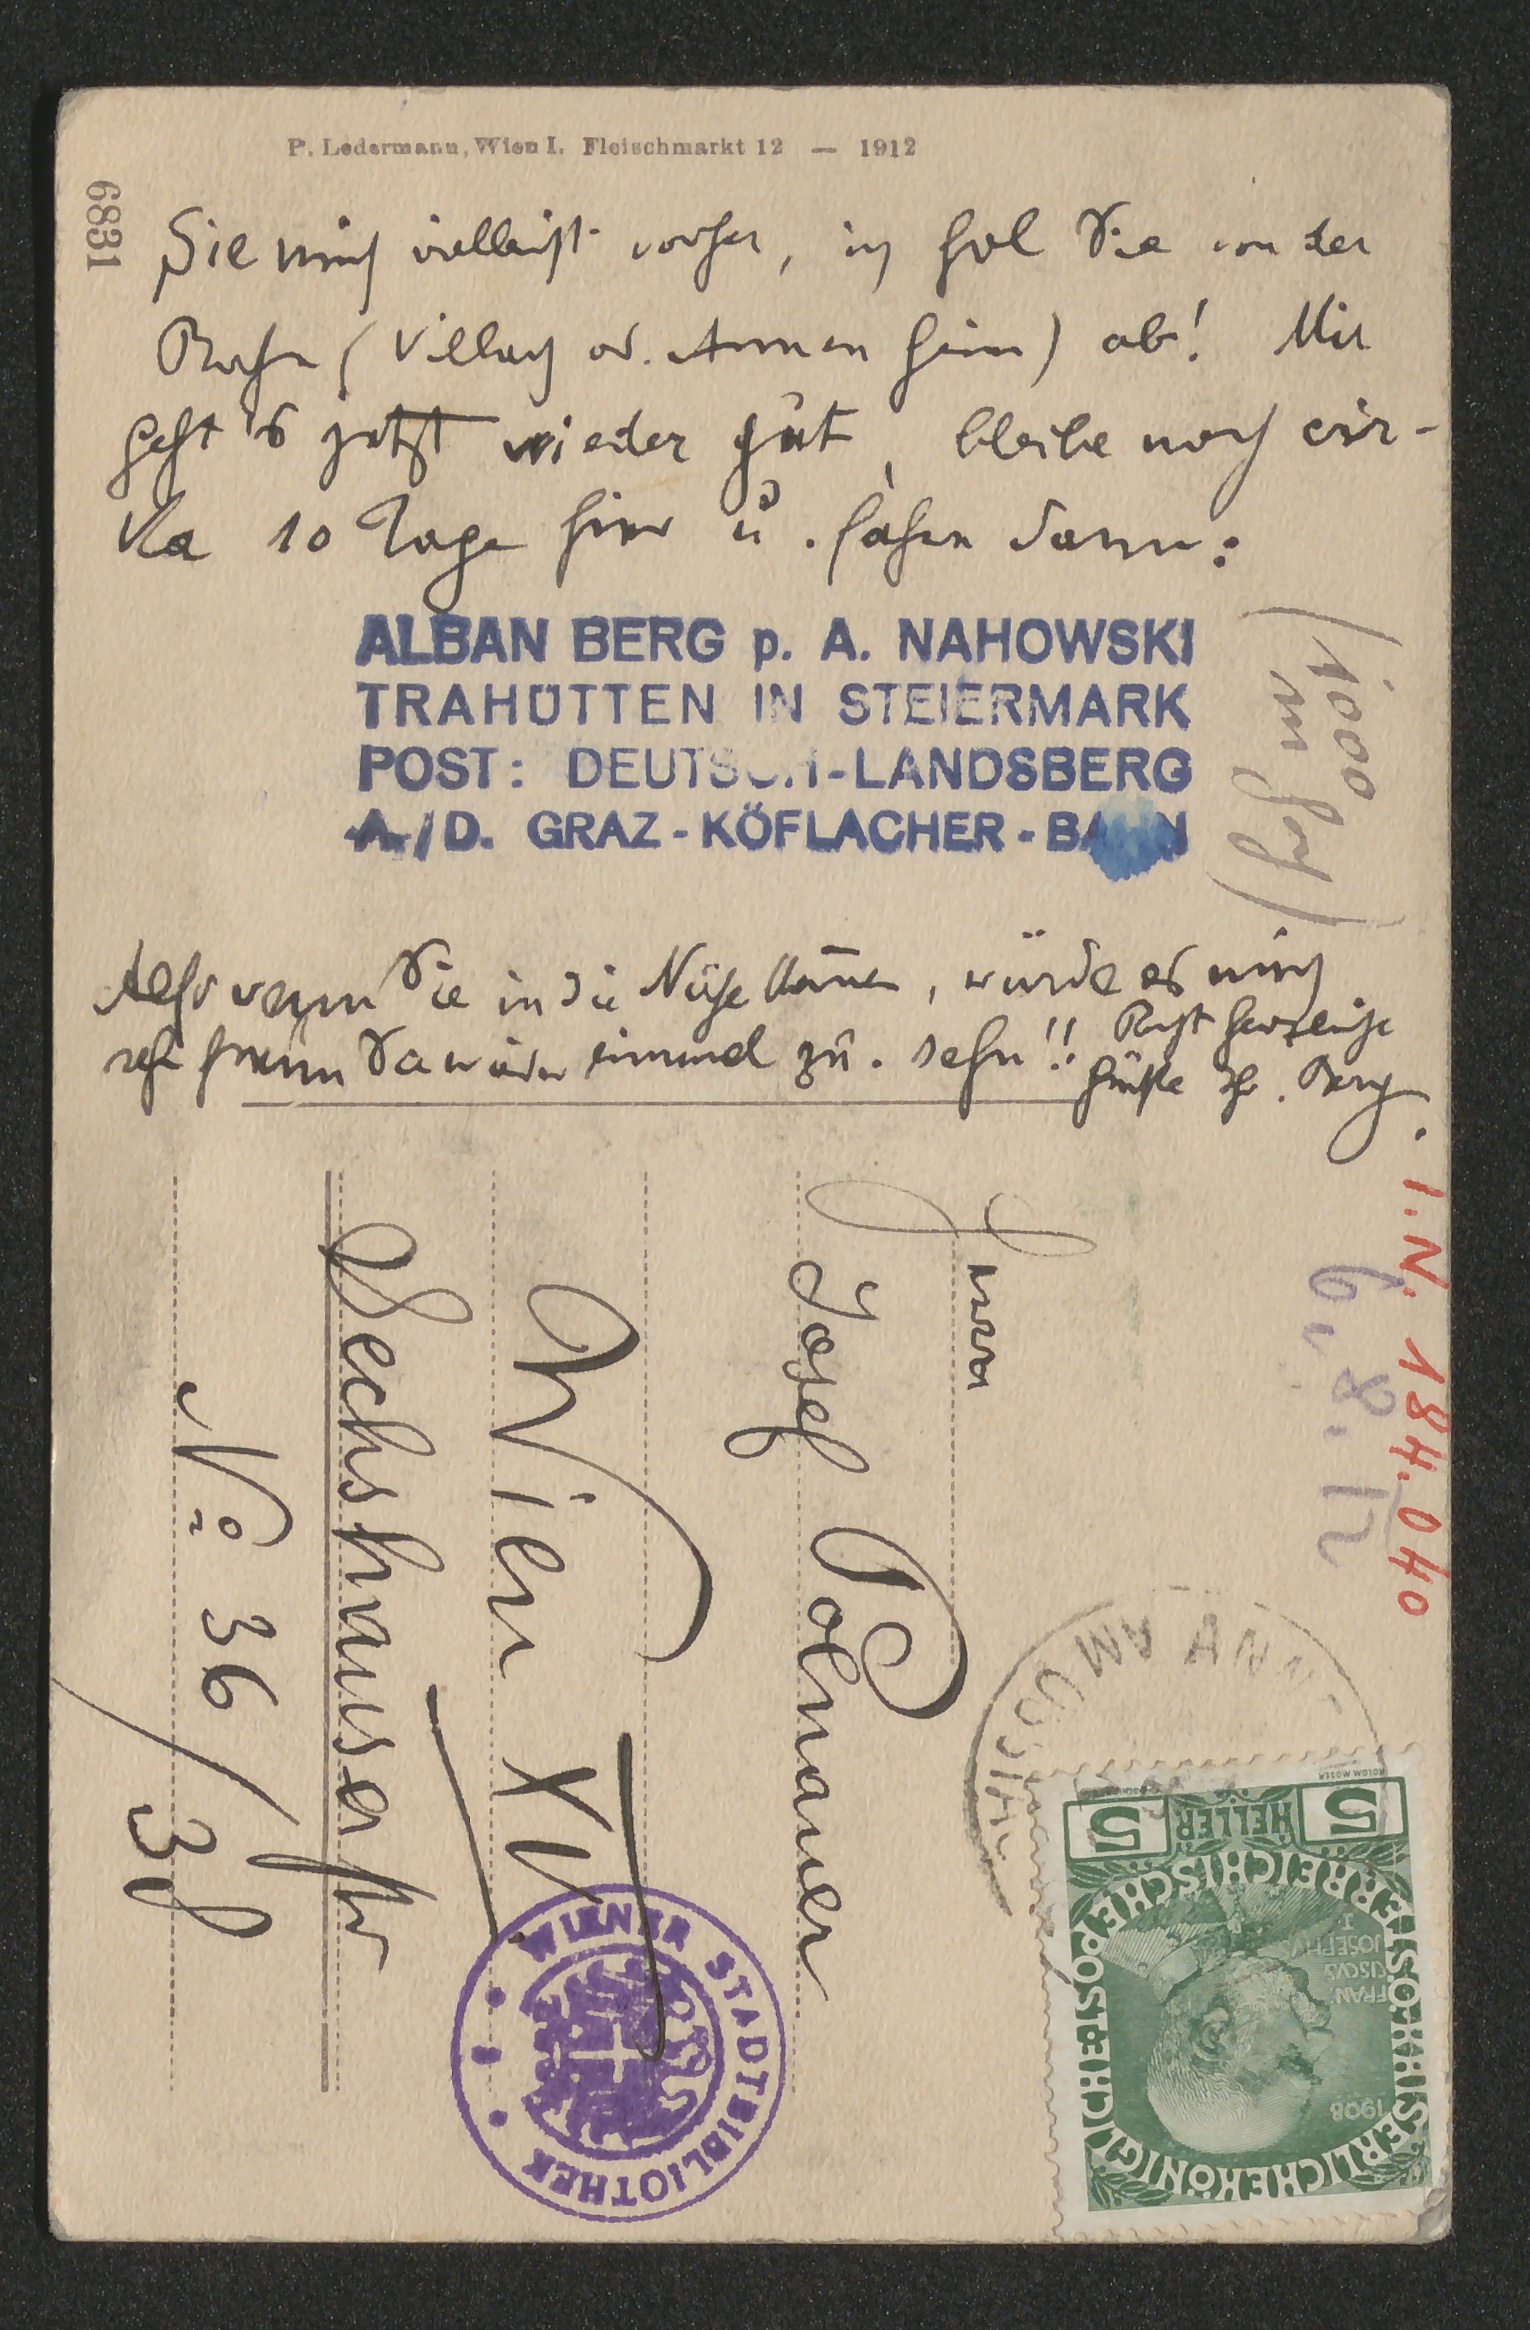 P. Ledermann, Wien I. Fleischmarkt 12 — 1912
6831
Sie mich vielleicht vorher, ich hol Sie von der
Bahn (Villach od. Annenheim) ab! Mir
geht's jetzt wieder gut, bleibe noch cir-
ka 10 Tage hier u. fahre dann:
ALBAN BERG p. A. NAHOWSKI
TRAHÜTTEN IN STEIERMARK
POST: DEUTSCH-LANDSBERG
A./D. GRAZ-KÖFLACHER-BAHN
(1000
m hoch)
Also wenn Sie in die Nähe kommen, würde es mich
sehr freuen Sie wieder einmal zu sehn!! Recht herzliche
Grüße Ihr Berg
I.N. 184.040
6. 8. 12
Herrn
Josef Polnauer
Wien XV
Sechshauserstr
No 36/38
WIENER STADTBIBLIOTHEK
5 HELLER 5
KAISERLICHE KÖNIGLICHE ÖSTERREICHISCHE POST
FRAN
CISCVS
JOSEPHVS
I
1908
KOLOM MOSER